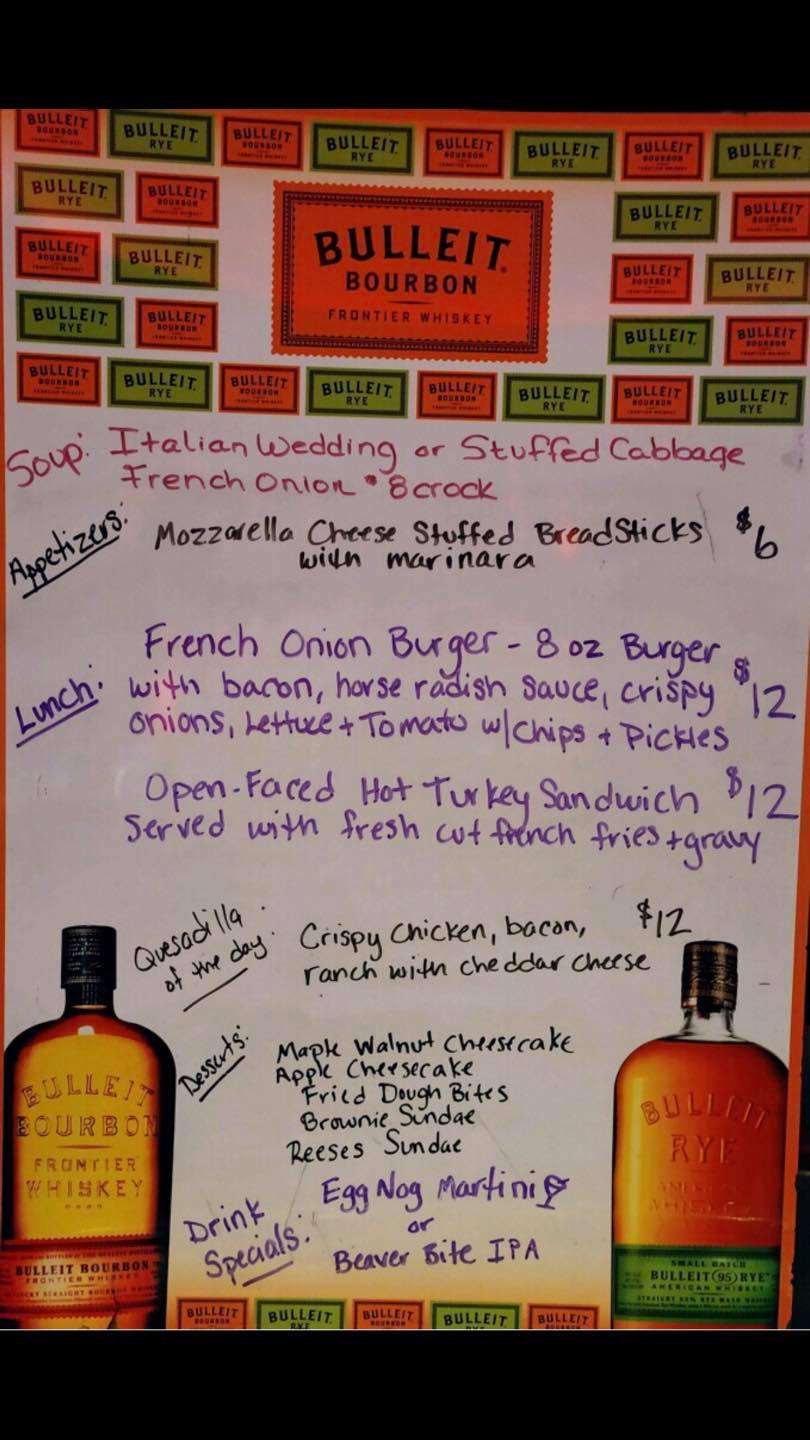 BULLEIT BOURBON FRONTIER WHISKEY BULLEIT RYE BULLEIT BOURBON FRONTIER WHISKEY BULLEIT RYE BULLEIT BOURBON FRONTIER WHISKEY BULLEIT RYE BULLEIT BOURBON FRONTIER WHISKEY BULLEIT RYE
BULLEIT RYE BULLEIT BOURBON FRONTIER WHISKEY BULLEIT RYE BULLEIT BOURBON
BULLEIT BOURBON FRONTIER WHISKEY BULLEIT RYE BULLEIT BOURBON FRONTIER WHISKEY BULLEIT RYE
BULLEIT RYE BULLEIT BOURBON FRONTIER WHISKEY BULLEIT RYE BULLEIT BOURBON
BULLEIT
BOURBON
FRONTIER WHISKEY
BULLEIT BOURBON FRONTIER WHISKEY BULLEIT RYE BULLEIT BOURBON FRONTIER WHISKEY BULLEIT RYE BULLEIT BOURBON FRONTIER WHISKEY BULLEIT RYE BULLEIT BOURBON FRONTIER WHISKEY BULLEIT RYE
Soup: Italian Wedding or Stuffed Cabbage
French Onion • 8 crock
Appetizers: Mozzarella Cheese Stuffed BreadSticks $6
with marinara
Lunch: French Onion Burger - 8 oz Burger
with bacon, horse radish sauce, crispy $12
onions, Lettuce + Tomato w/chips + Pickles
Open-Faced Hot Turkey Sandwich $12
Served with fresh cut french fries + gravy
Quesadilla
of the day: Crispy Chicken, bacon, $12
ranch with cheddar cheese
Desserts: Maple Walnut Cheesecake
Apple Cheesecake
Fried Dough Bites
Brownie Sundae
Reeses Sundae
Drink
Specials: Egg Nog Martini
or
Beaver Bite IPA
BULLEIT
BOURBON
FRONTIER
WHISKEY
BULLEIT BOURBON
FRONTIER WHISKEY
BULLEIT
RYE
AMERICAN
WHISKEY
SMALL BATCH
BULLEIT 95 RYE
AMERICAN WHISKEY
BULLEIT BOURBON BULLEIT RYE BULLEIT BOURBON BULLEIT RYE BULLEIT BOURBON